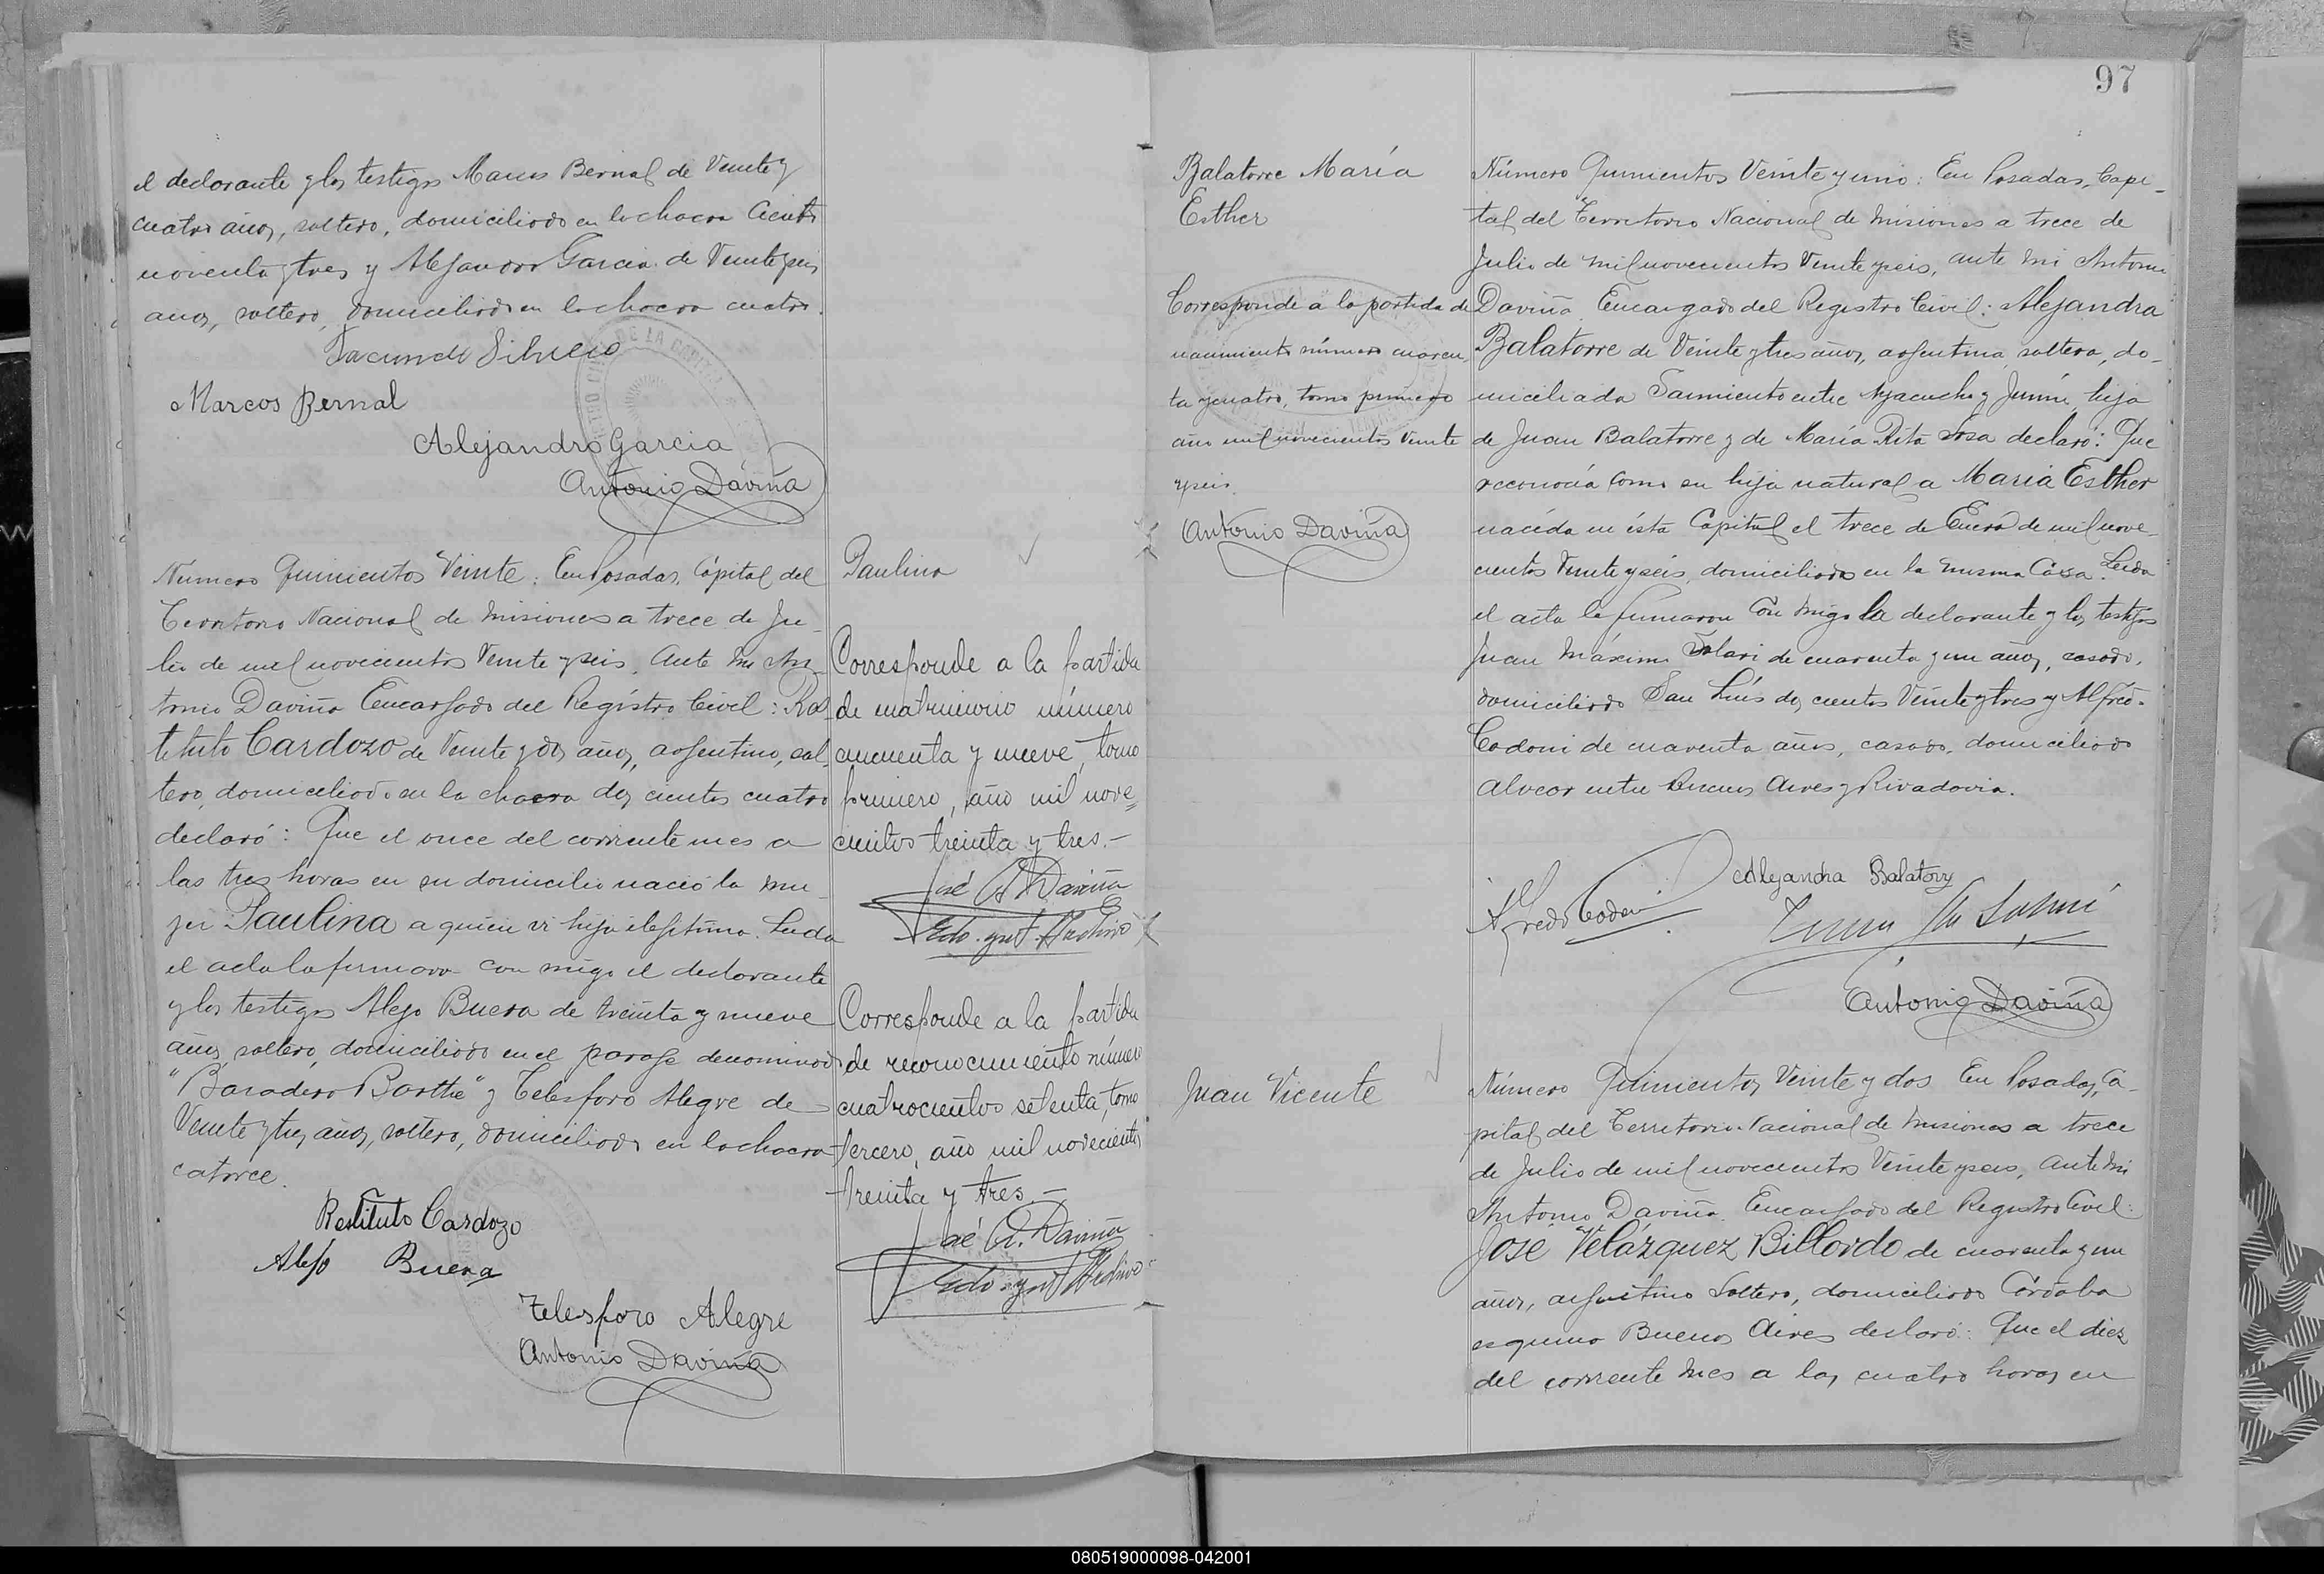 el declarante y los testigos Marcos Bernal de Veinte y
cuatro años, soltero, domiciliado en la chacra Ciento
noventa y tres y Alejandro Garcia de Veinte y seis
años, soltero, domiciliado en la chacra cuatro.
Facundo
Marcos Bernal
Alejandro Garcia
Antonio Daviña
Número Quinientos Veinte: En Posadas, Cápital del
Territorio Nacional de Misiones a trece de Ju-
lio de mil novecientos Veinte y seis, Ante mi An-
tonio Daviña Encargado del Registro Civil: Res-
tituto Cardozo de Veinte y dos años, argentino, sol-
tero, domiciliado en la chacra dos cientos cuatro
declaró: Que el once del corriente mes a
las tres horas en su domicilio nació la mu-
jer Paulina a quien vi hija ilegítima. Leida
el acta la firmaron con migo el declarante
y los testigos Alejo Buera de treinta y nueve
años, soltero, domiciliado en el paraje denominado
"Baradero Barthe" y Telesforo Alegre de
Veinte y tres años, soltero, domiciliado en la chacra
catorce.
Restituto Cardozo
Alejo Buera
Telesforo Alegre
Antonio Daviña
Paulina
Corresponde a la partida
de matrimonio número
cincuenta y nueve, tomo
primero, año mil nove-
cientos treinta y tres.-
José A. Daviña
Corresponde a la partida
de reconocimiento número
cuatrocientos setenta, tomo
tercero, año mil novecientos
treinta y tres.-
José A. Daviña
97
Balatorre María
Esther
Corresponde a la partida de
nacimiento número cuaren
ta y cuatro, tomo primero
año mil novecientos Veinte
y seis.
Antonio Daviña
Número Quinientos Veinte y uno: En Posadas, Capi-
tal del Territorio Nacional de Misiones a trece de
Julio de mil novecientos Veinte y seis, ante mi Antonio
Daviña Encargado del Registro Civil: Alejandra
Balatorre de Veinte y tres años, argentina, soltera, do-
miciliada Sarmiento entre Ayacucho y Junín, hija
de Juan Balatorre y de María Rita Sosa declaró: Que
reconocía como su hija natural a María Esther
nacida en ésta Capital el trece de Enero de mil nove-
cientos Veinte y seis, domiciliada en la misma Casa. Leida
el acta la firmaron con migo la declarante y los testigos
Juan Máximo Solari de cuarenta y un años, casado,
domiciliado San Luís dos cientos Veinte y tres y Alfredo
Codoni de cuarenta años, casado, domiciliado
Alvear entre Buenos Aires y Rivadavia.
Alejandra Balatorre
Alfredo Codoni
Antonio Daviña
Juan Vicente
Número Quinientos Veinte y dos En Posadas, Ca-
pital del Territorio Nacional de Misiones a trece
de Julio de mil novecientos Veinte y seis, Ante mi
Antonio Daviña Encargado del Registro Civil:
José Velázquez Billordo de cuarenta y un
años, argentino Soltero, domiciliado Córdoba
esquina Buenos Aires declaró: Que el diez
del corriente mes a las cuatro horas en
080519000098-042001